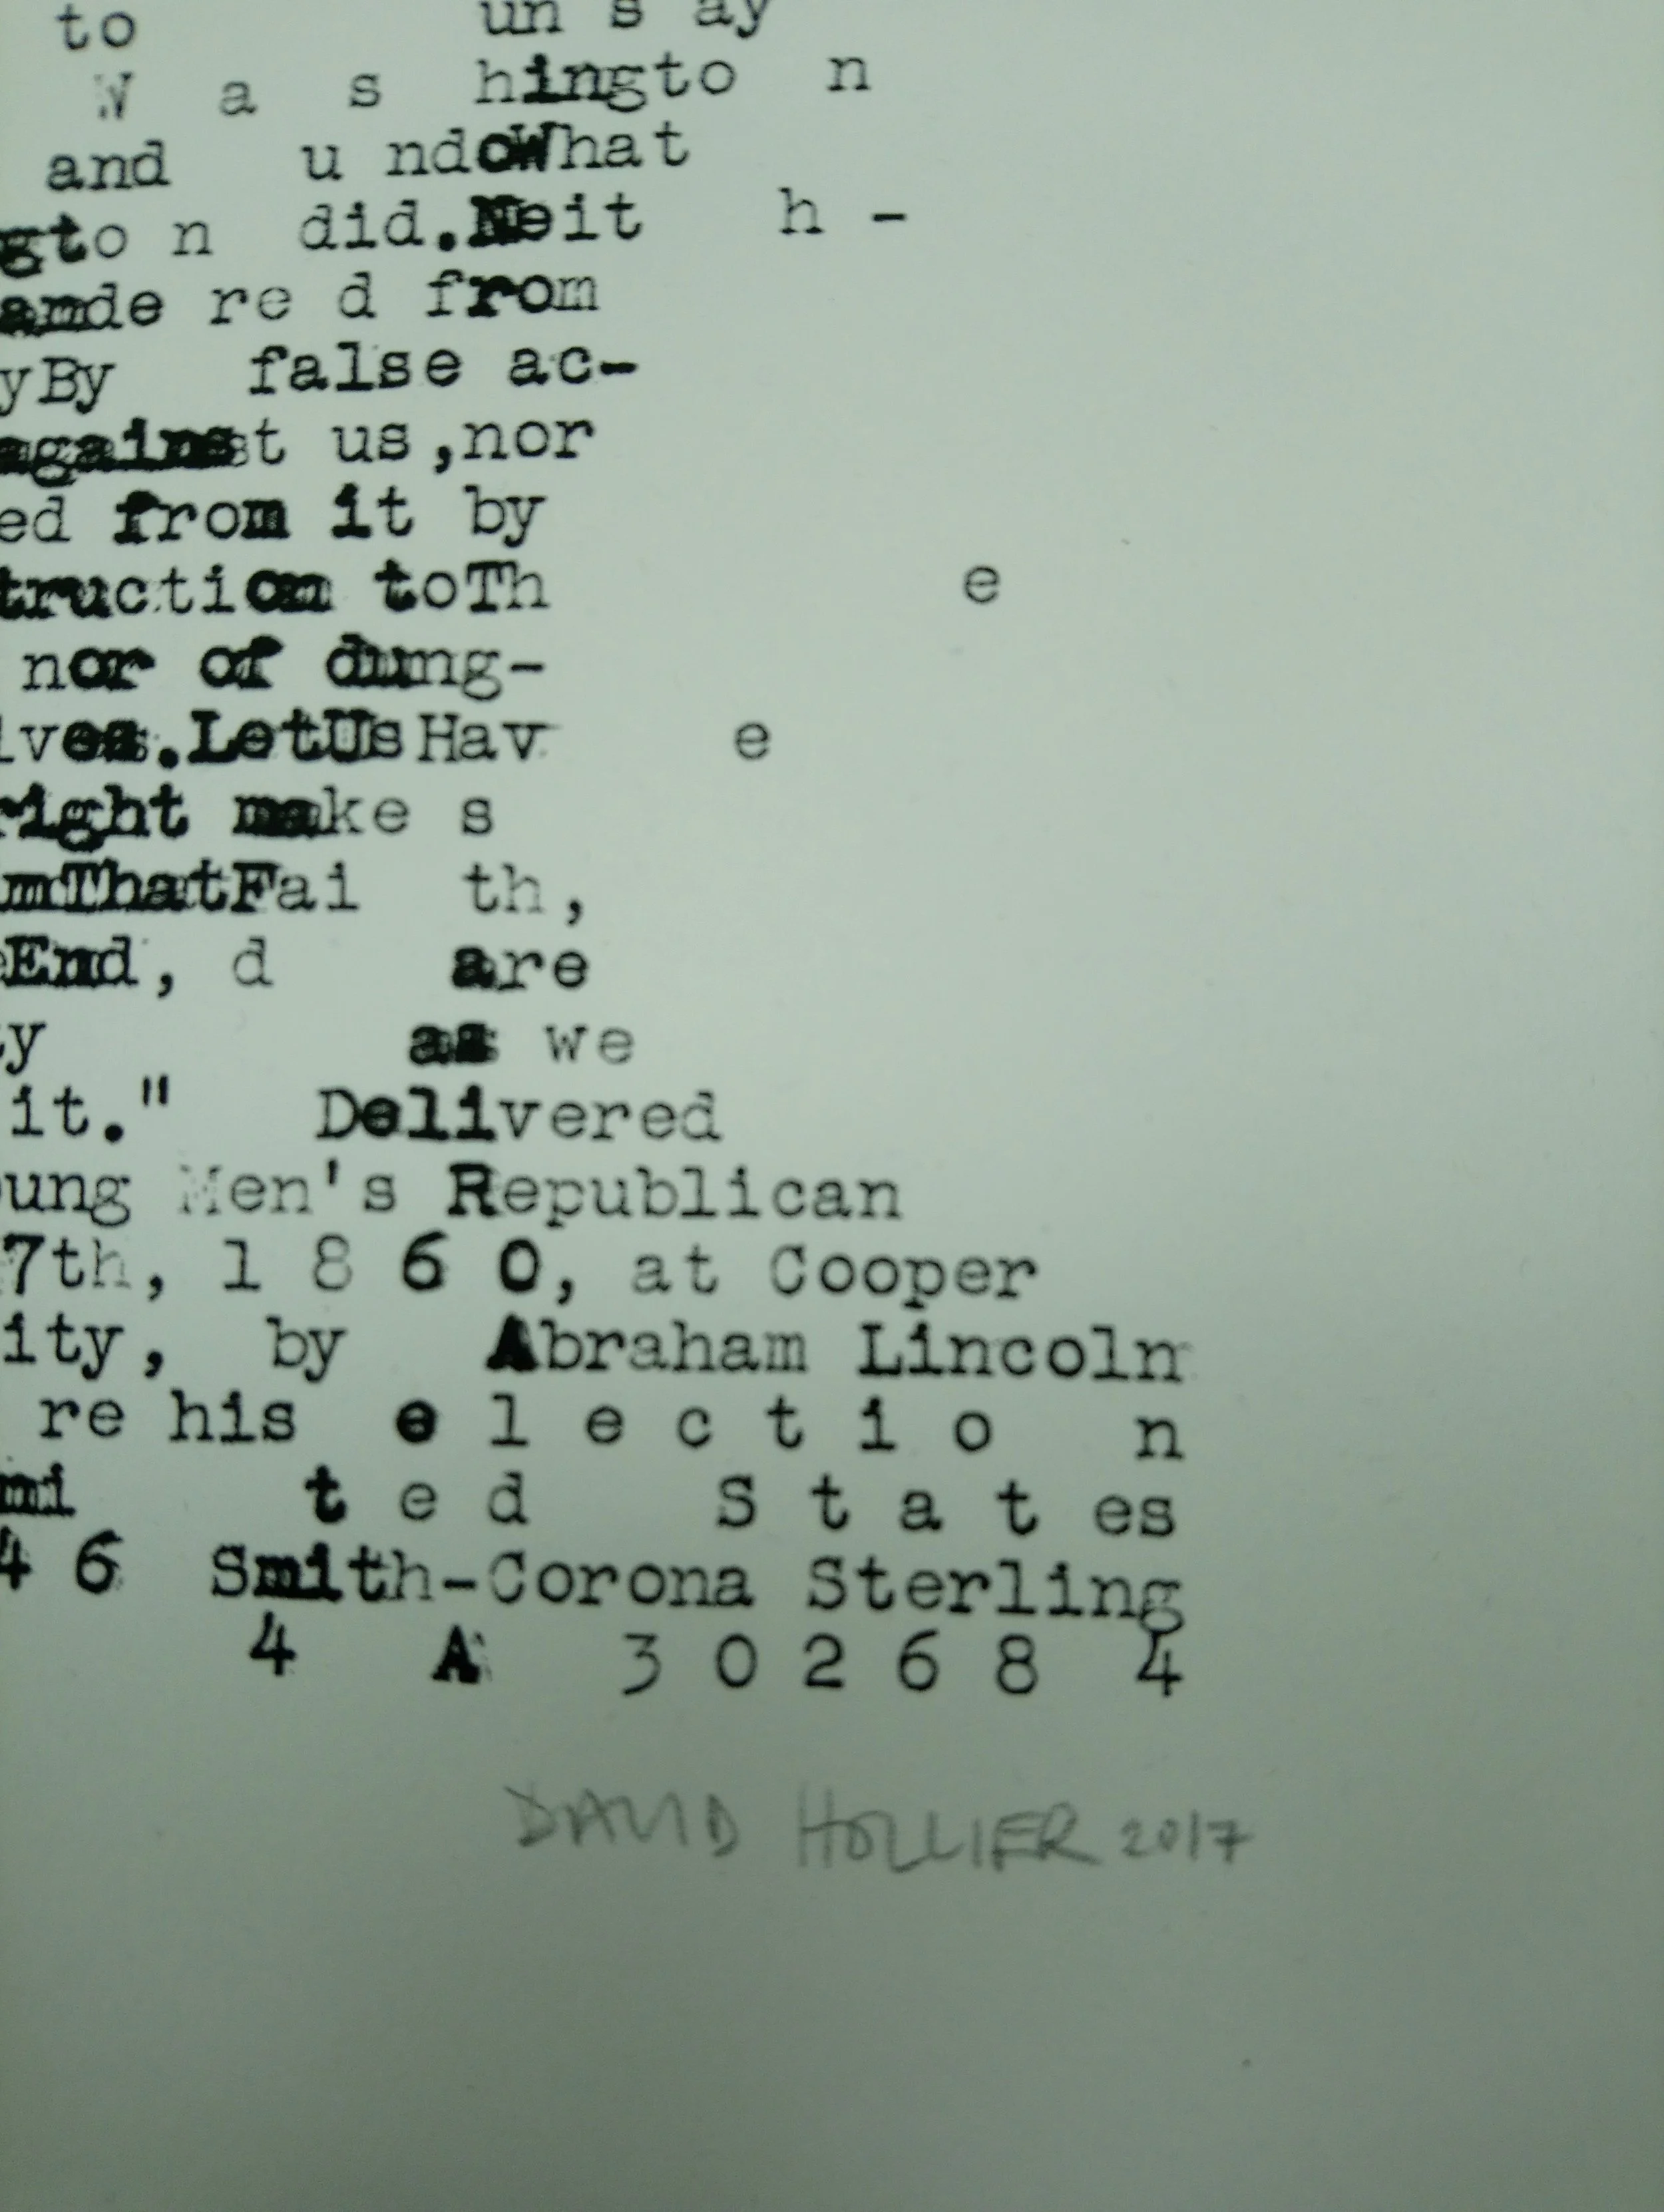 to un s ay
W a s hington n
and u ndoWhat
gto n did.Neit h -
ande re d from
yBy false ac-
against us,nor
ed from it by
truction toTh e
nor of dung-
lves.LetUsHav e
right make s
mThatFai th,
eEnd, d are
ty as we
it." Delivered
oung Men's Republican
7th, 1 8 6 0, at Cooper
ity, by Abraham Lincoln
re his e l e c t i o n
ni t e d S t a t es
4 6 Smith-Corona Sterling
4 A 3 0 2 6 8 4
DAVID HOLLIER 2017